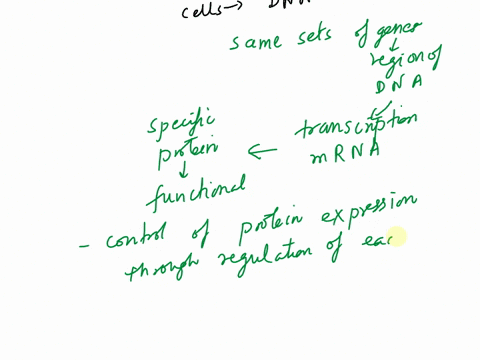 cells → DNA
same sets of genes
↓
region of
DNA
↓
transcription
mRNA
←
specific
protein
↓
functional
- control of protein expression
through regulation of eac